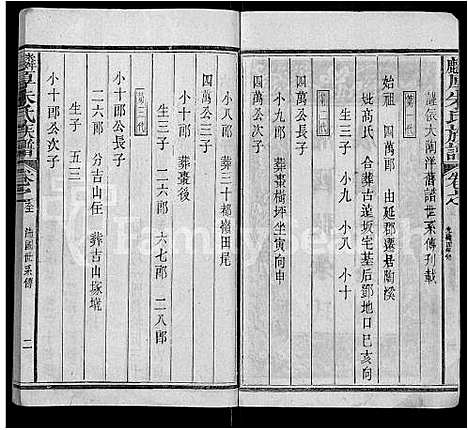 朱氏族譜
謹依大陶洋舊譜世系傳刊載
第一代
始祖 四萬郎 由延郡遷居陶溪
妣髙氏 合葬古逕坂宅基后鄧地口巳亥向
生三子 小九 小八 小十
第二代
四萬公長子
小九郎 葬棗樹坪坐寅向申
四萬公次子
小八郎 葬三十都嶺田尾
四萬公三子
小十郎 葬棗後
生三子 二六郎 六七郎 二八郎
第三代
小十公長子
二六郎 分吉山住 葬吉山塚坑
生子 五三
小十公次子
朱氏族譜
世系傳
二